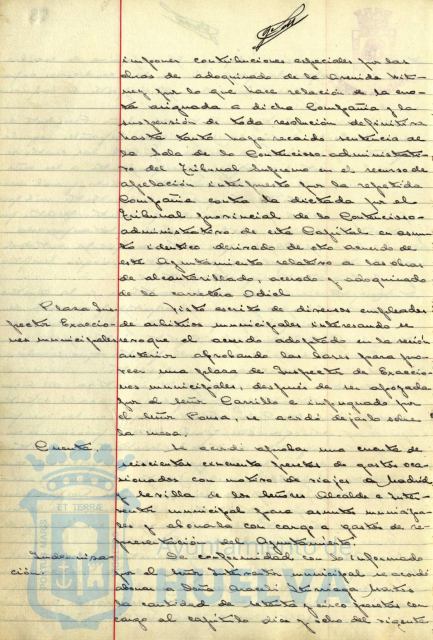 imponer contribuciones especiales por las
obras de adoquinado de la Avenida Wit-
ney por lo que hace relación de la cuo-
ta asignada a dicha Compañia y la
suspensión de toda resolución definitiva
hasta tanto haya recaido sentencia de
la Sala de lo Contencioso-administrati-
vo del Tribunal Supremo en el recurso de
apelación interpuesto por la repetida
Compañia contra la dictada por el
Tribunal provincial de lo Contencioso-
administrativo de esta Capital en asun-
to identico derivado de otro acuerdo de
este Ayuntamiento relativo a las obras
de alcantarillado, acerado y adoquinado
de la carretera Odiel
Plaza Ins-
pector Exaccio-
nes municipales
Visto escrito de diversos empleados
de arbitrios municipales interesando se
revoque el acuerdo adoptado en la sesión
anterior aprobando las bases para pro-
veer una plaza de Inspector de Exaccio-
nes municipales, despues de ser apoyada
por el señor Carrillo e impugnado por
el señor Ponsa, se acordó dejarlo sobre
la mesa.
Cuenta.
Se acordó aprobar una cuenta de
seiscientas cincuenta pesetas de gastos oca-
sionados con motivo de viajes a Madrid
y Sevilla de los señores Alcalde e Inter-
ventor municipal para asuntos municipa-
les y abonarla con cargo a gastos de re-
presentación del Ayuntamiento.
Indemniza-
ción.
De conformidad con lo informado
por el señor interventor municipal se acordó
abonar a Doña Araceli
la cantidad de setenta y cinco pesetas con
cargo al capitulo diez y ocho del vigente
Ayuntamiento de
HUELVA